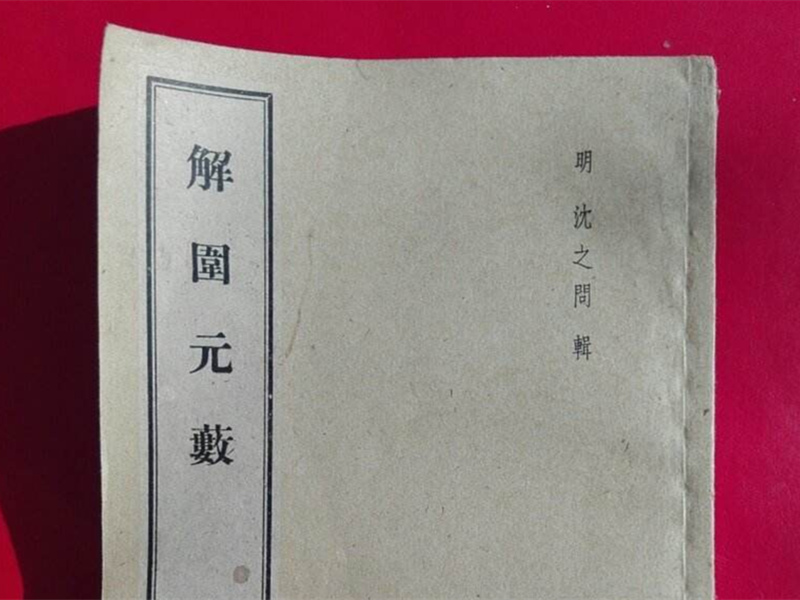 明 沈之問 輯
解圍元藪